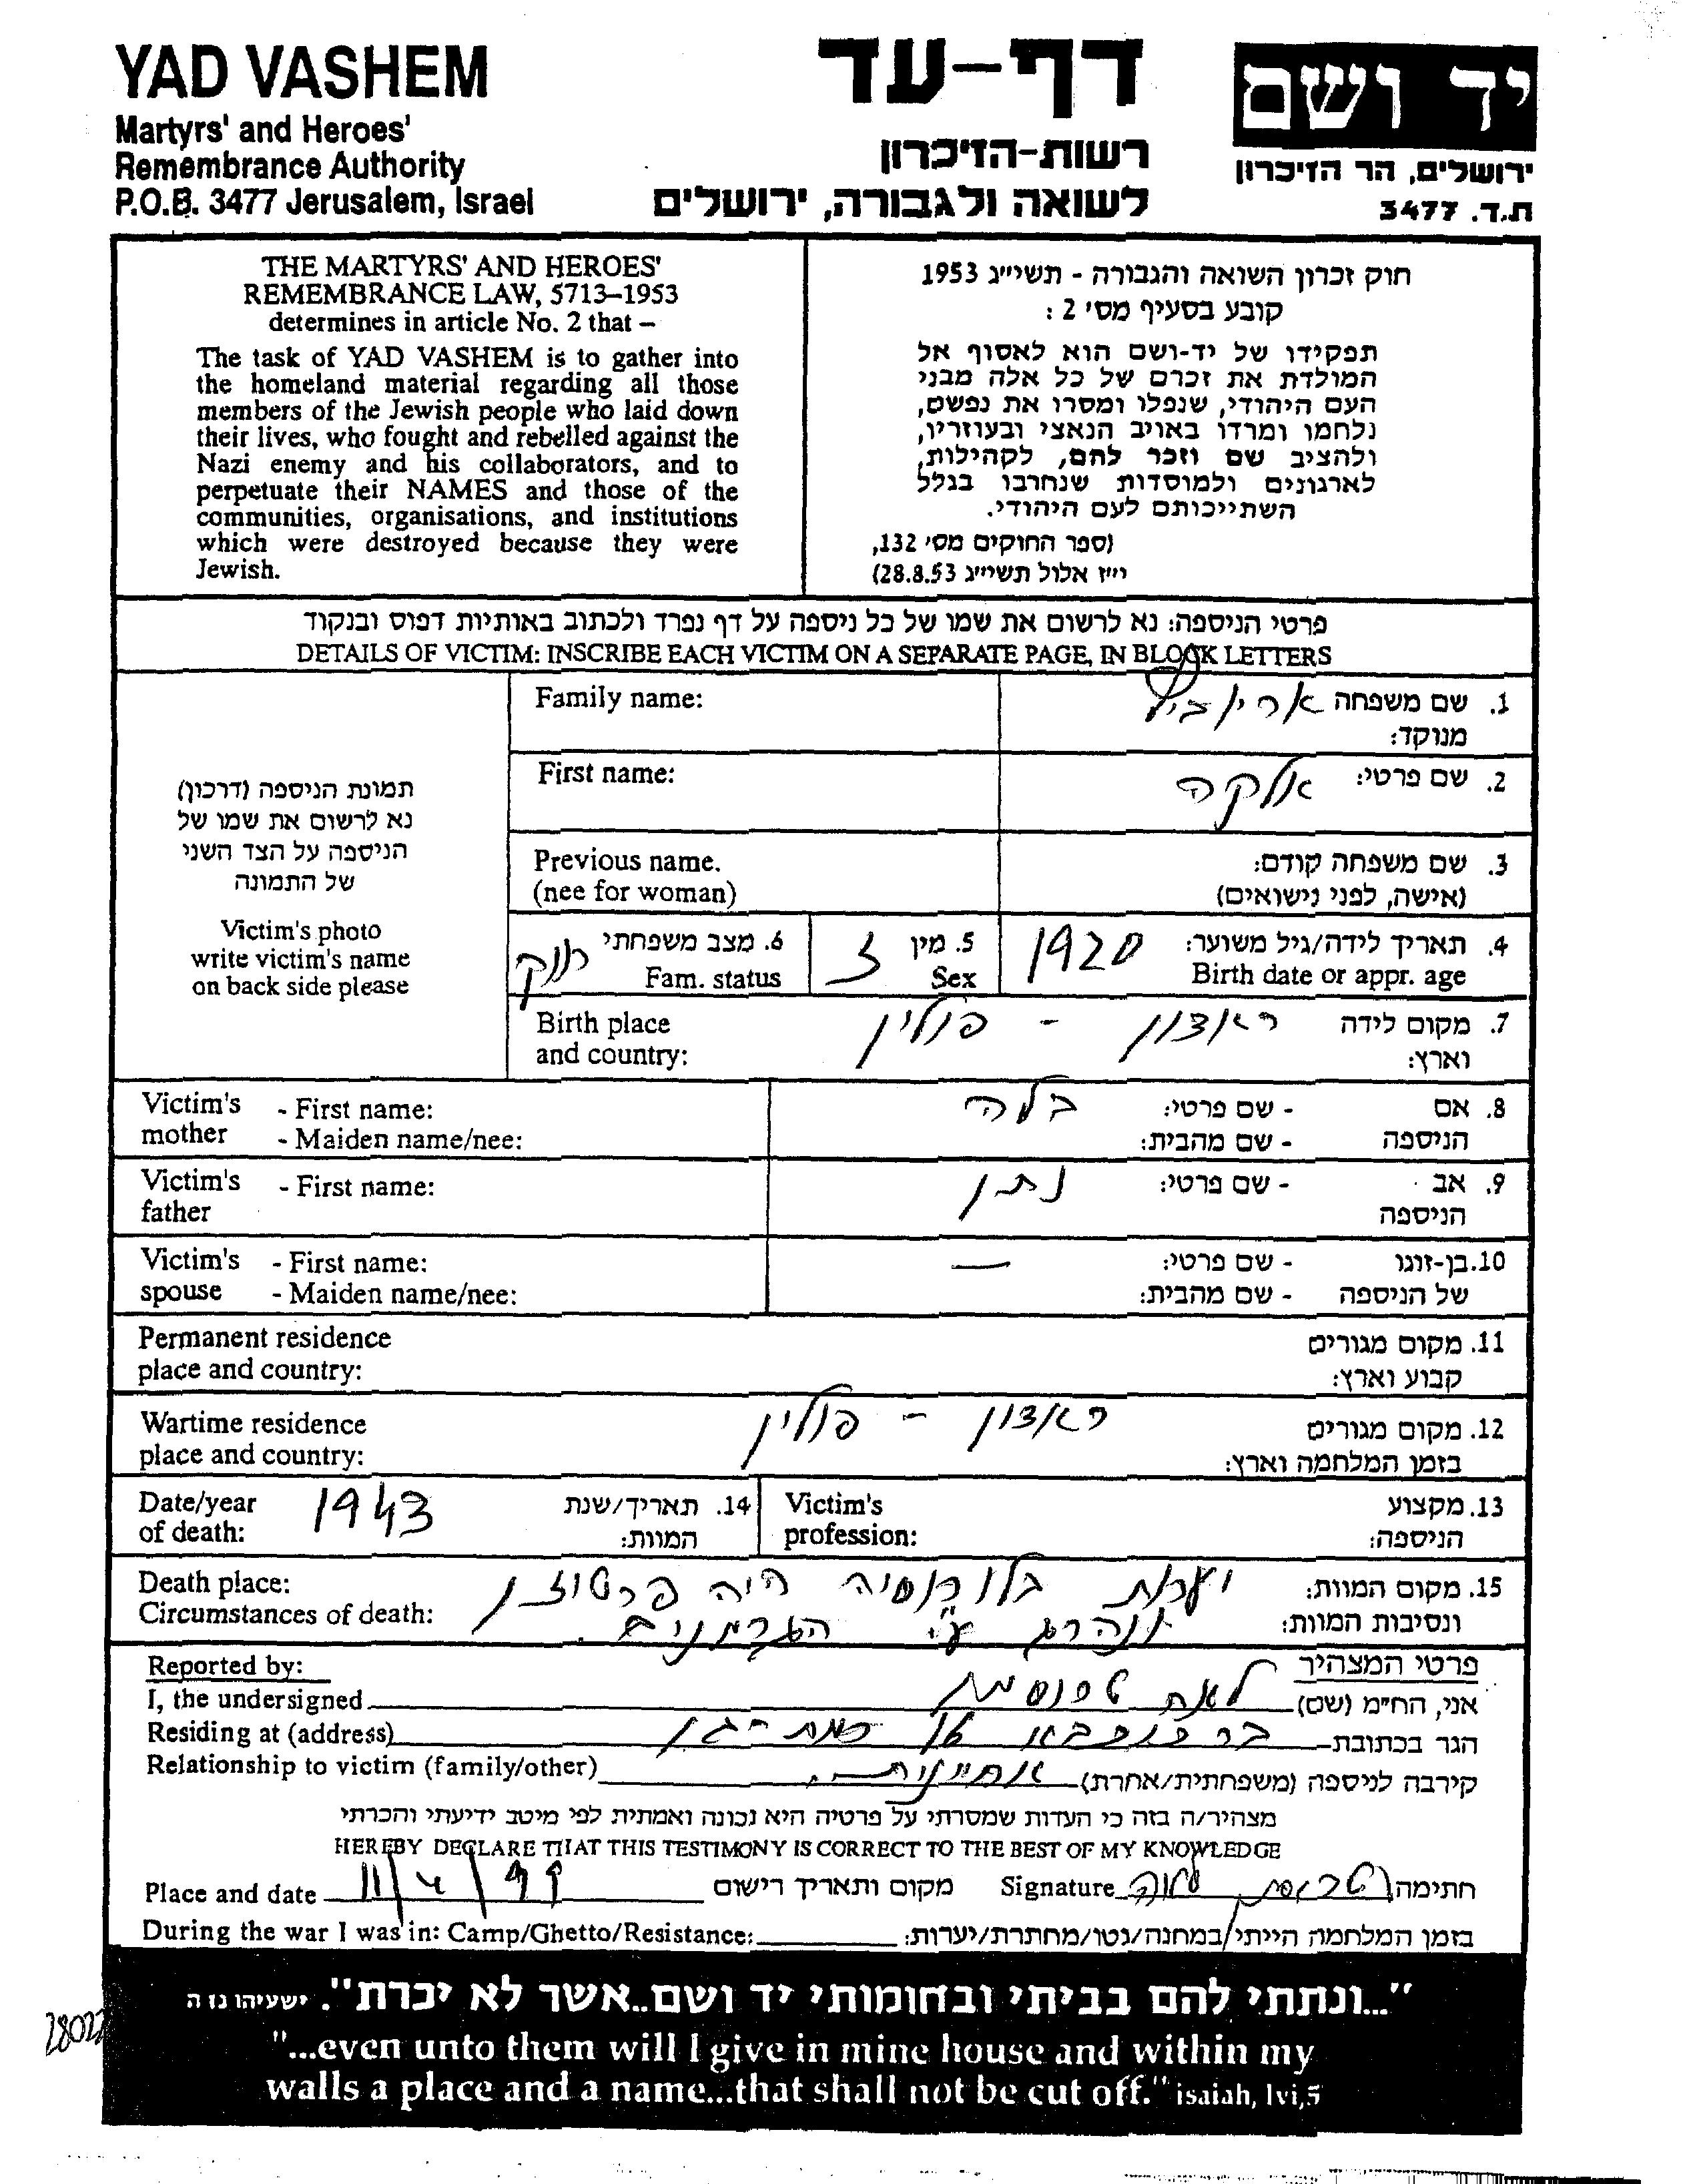 YAD VASHEM
Martyrs' and Heroes'
Remembrance Authority
P.O.B. 3477 Jerusalem, Israel
דף-עד
רשות-הזיכרון
לשואה ולגבורה, ירושלים
יד ושם
ירושלים, הר הזיכרון
ת.ד. 3477
THE MARTYRS' AND HEROES'
REMEMBRANCE LAW, 5713–1953
determines in article No. 2 that –
The task of YAD VASHEM is to gather into
the homeland material regarding all those
members of the Jewish people who laid down
their lives, who fought and rebelled against the
Nazi enemy and his collaborators, and to
perpetuate their NAMES and those of the
communities, organisations, and institutions
which were destroyed because they were
Jewish.
חוק זכרון השואה והגבורה - תשי״ג 1953
קובע בסעיף מס׳ 2 :
תפקידו של יד-ושם הוא לאסוף אל
המולדת את זכרם של כל אלה מבני
העם היהודי, שנפלו ומסרו את נפשם,
נלחמו ומרדו באויב הנאצי ובעוזריו,
ולהציב שם וזכר להם, לקהילות,
לארגונים ולמוסדות שנחרבו בגלל
השתייכותם לעם היהודי.
(ספר החוקים מס׳ 132,
י״ז אלול תשי״ג 28.8.53)
פרטי הניספה: נא לרשום את שמו של כל ניספה על דף נפרד ולכתוב באותיות דפוס ובנקוד
DETAILS OF VICTIM: INSCRIBE EACH VICTIM ON A SEPARATE PAGE, IN BLOCK LETTERS
תמונת הניספה (דרכון)
נא לרשום את שמו של
הניספה על הצד השני
של התמונה
Victim's photo
write victim's name
on back side please
Family name:
1. שם משפחה
מנוקד:
First name:
2. שם פרטי: אלקה
Previous name.
(nee for woman)
3. שם משפחה קודם:
(אישה, לפני נישואים)
4. תאריך לידה/גיל משוער: 1920
Birth date or appr. age
5. מין ז
Sex
6. מצב משפחתי רווק
Fam. status
Birth place
and country:
7. מקום לידה ראדזון - פולין
וארץ:
Victim's - First name:
mother - Maiden name/nee:
8. אם - שם פרטי: בלה
הניספה - שם מהבית:
Victim's - First name:
father
9. אב - שם פרטי: נתן
הניספה
Victim's - First name:
spouse - Maiden name/nee:
10. בן-זוגו - שם פרטי: —
של הניספה - שם מהבית:
Permanent residence
place and country:
11. מקום מגורים
קבוע וארץ:
Wartime residence
place and country:
12. מקום מגורים ראדזון - פולין
בזמן המלחמה וארץ:
Date/year
of death:
14. תאריך/שנת 1943
המוות:
Victim's
profession:
13. מקצוע
הניספה:
Death place:
Circumstances of death:
15. מקום המוות: יערות בלורוסיה היה פרטיזן
ונסיבות המוות: ונהרג ע״י הגרמנים.
Reported by:
פרטי המצהיר
I, the undersigned
אני, הח״מ (שם) לאה
Residing at (address)
הגר בכתובת בר כוכבא 16 רמת-גן
Relationship to victim (family/other)
קירבה לניספה (משפחתית/אחרת) אחיינית.
מצהיר/ה בזה כי העדות שמסרתי על פרטיה היא נכונה ואמתית לפי מיטב ידיעתי והכרתי
HEREBY DECLARE THAT THIS TESTIMONY IS CORRECT TO THE BEST OF MY KNOWLEDGE
Place and date 11/4/99 מקום ותאריך רישום
Signature לאה חתימה
During the war I was in: Camp/Ghetto/Resistance:
בזמן המלחמה הייתי/במחנה/גטו/מחתרת/יערות:
"...ונתתי להם בביתי ובחומותי יד ושם..אשר לא יכרת". ישעיהו נו ה
"...even unto them will I give in mine house and within my
walls a place and a name...that shall not be cut off." isaiah, lvi,5